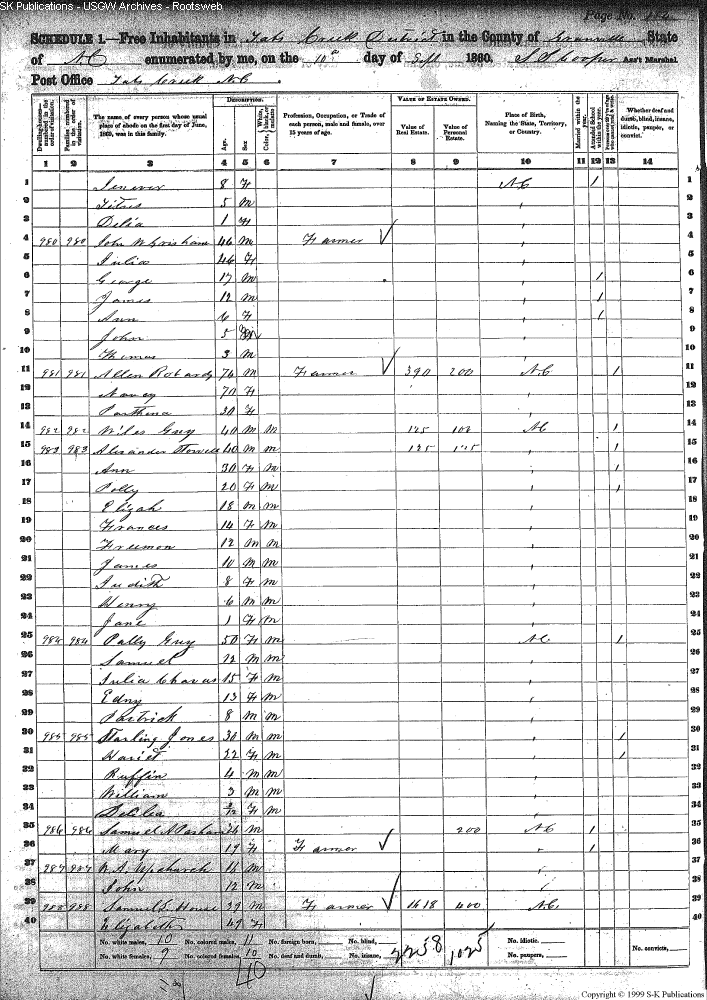 SK Publications - USGW Archives - Rootsweb
Page No.
SCHEDULE 1.—Free Inhabitants in Tabs Creek District in the County of Granville State
of NC enumerated by me, on the 10th day of Sept 1860. S S Cooper Ass't Marshal
Post Office Tabs Creek NC
Dwelling-houses numbered in the order of visitation.
Families numbered in the order of visitation.
The name of every person whose usual place of abode on the first day of June, 1860, was in this family.
DESCRIPTION.
Age.
Sex
Color, White, black, or mulatto
Profession, Occupation, or Trade of each person, male and female, over 15 years of age.
VALUE OF ESTATE OWNED.
Value of Real Estate.
Value of Personal Estate.
Place of Birth, Naming the State, Territory, or Country.
Married within the year.
Attended School within the year.
Whether deaf and dumb, blind, insane, idiotic, pauper, or convict.
1 2 3 4 5 6 7 8 9 10 11 12 13 14
1 8 F NC / 1
2 Titus 5 M 2
3 Delia 1 F 3
4 980 980 John W Grisham 46 M Farmer 4
5 Julia 46 F 5
6 George 17 M / 6
7 James 12 M / 7
8 Ann 6 F / 8
9 John 5 M 9
10 Thomas 3 M 10
11 981 981 Allen Robards 76 M Farmer 390 200 NC / 11
12 Nancy 70 F 12
13 Parthena 30 F 13
14 982 982 Guy 40 M M 125 102 NC / 14
15 983 983 Alexander 40 M M 125 125 / 15
16 Ann 30 F M / 16
17 Polly 20 F M / 17
18 Elijah 18 M M 18
19 Frances 14 F M 19
20 Freemon 12 M M 20
21 James 10 M M 21
22 Judith 8 F M 22
23 Henry 6 M M 23
24 Jane 1 F M 24
25 984 984 Polly Guy 50 F M NC / 25
26 Samuel 12 M M 26
27 Julia Chavas 15 F M 27
28 Edny 13 F M 28
29 Patrick 8 M M 29
30 985 985 Starling Jones 30 M M / 30
31 Hariet 22 F M / 31
32 Ruffin 4 M M 32
33 William 3 M M 33
34 Delilea 2/12 F M 34
35 986 986 Samuel 26 M 200 NC / 35
36 Mary 19 F Farmer / 36
37 987 987 Upchurch 16 M 37
38 John 12 M 38
39 988 988 Samuel S House 29 M Farmer 1618 400 NC 39
40 Elizabeth 49 F 40
No. white males, 10 No. colored males, 11 No. foreign born, No. blind, 2258 1025 No. idiotic,
No. white females, 9 No. colored females, 10 No. deaf and dumb, No. insane, No. paupers, No. convicts,
40
Copyright © 1999 S-K Publications